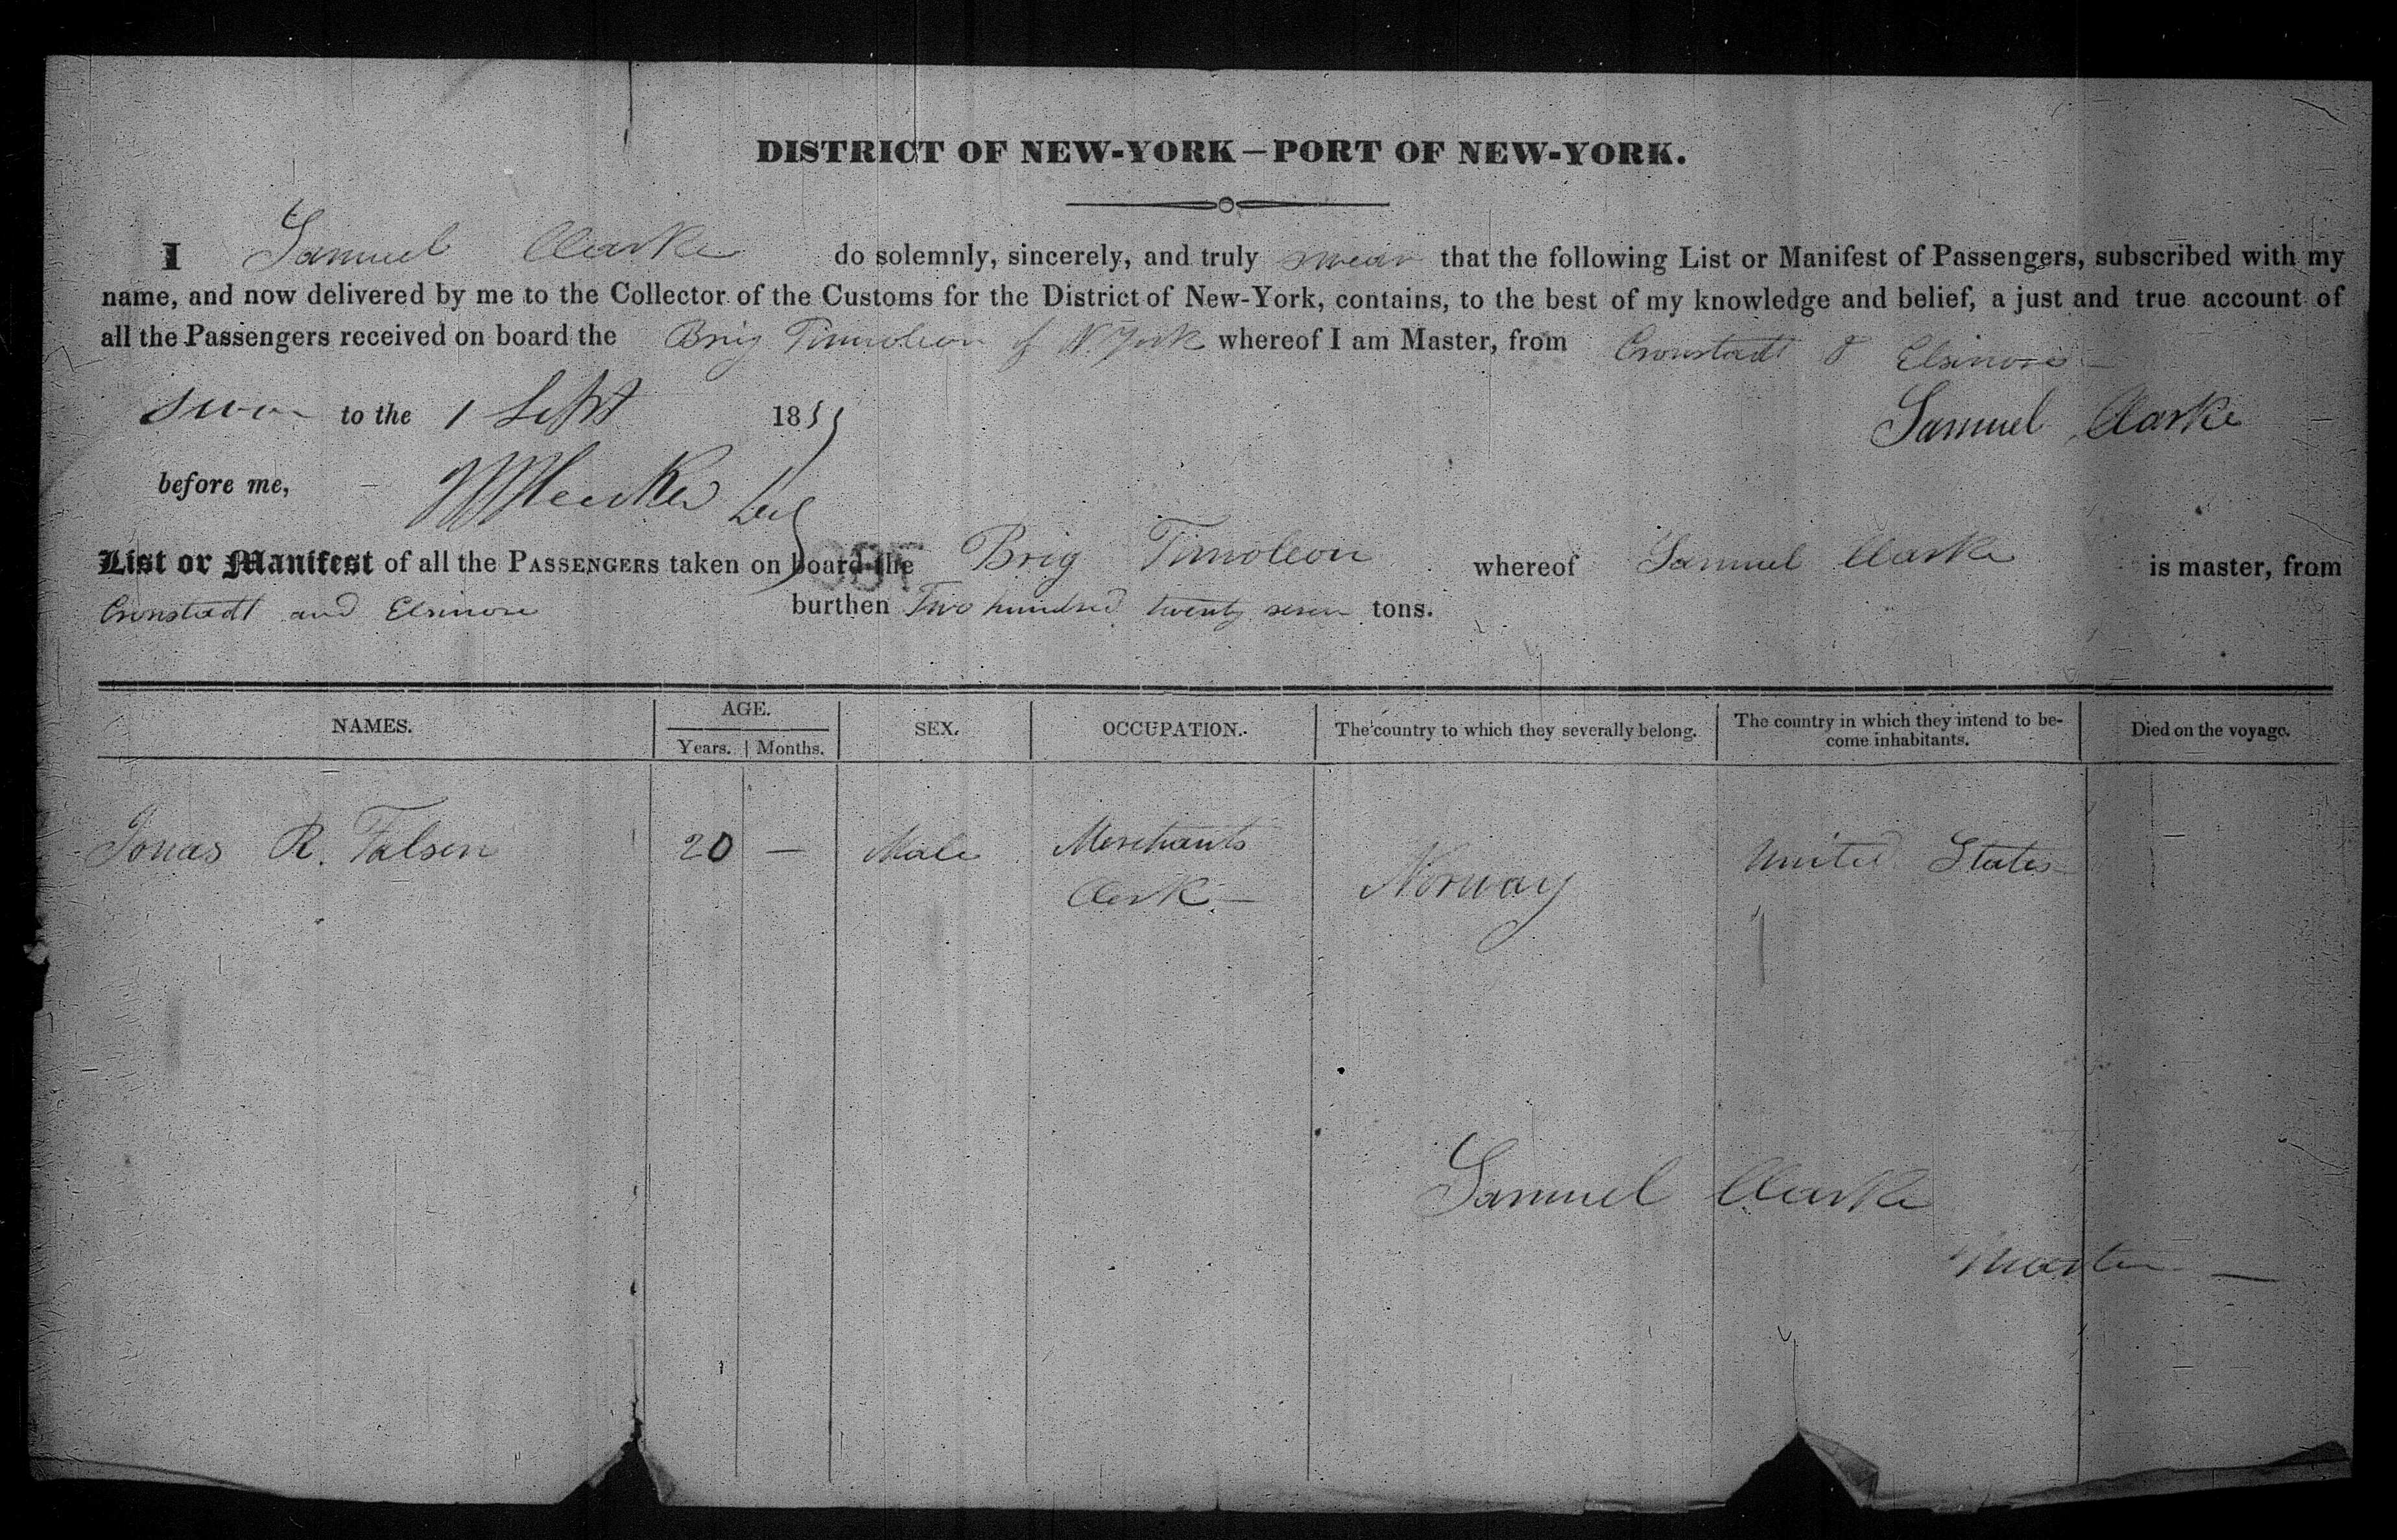 DISTRICT OF NEW-YORK—PORT OF NEW-YORK.
I Samuel Clarke do solemnly, sincerely, and truly swear that the following List or Manifest of Passengers, subscribed with my
name, and now delivered by me to the Collector of the Customs for the District of New-York, contains, to the best of my knowledge and belief, a just and true account of
all the Passengers received on board the Brig Timoleon of N. York whereof I am Master, from Cronstadt & Elsinore
Swon to the 1 Sept 18
Samuel Clarke
before me,
List or Manifest of all the PASSENGERS taken on board the Brig Timoleon whereof Samuel Clarke is master, from
Cronstadt and Elsinore burthen Two hundred twenty seven tons.
NAMES. AGE. SEX. OCCUPATION. The country to which they severally belong. The country in which they intend to be-
come inhabitants. Died on the voyage.
Years. Months.
Jonas R. Falsen 20 — Male Merchants Norway United States
Clerk —
Samuel Clarke
Master —